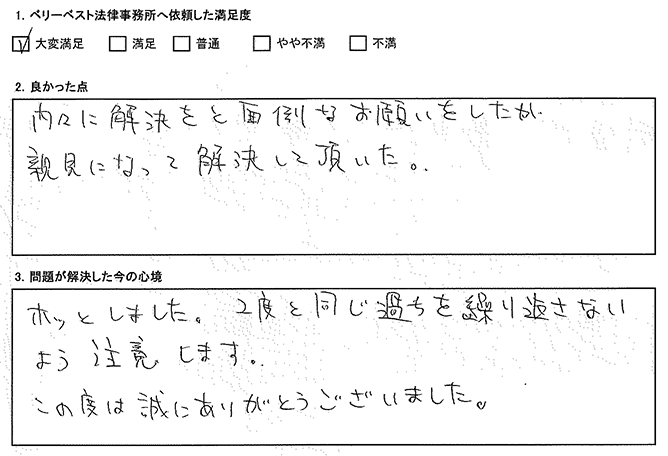 1. ベリーベスト法律事務所へ依頼した満足度
☑ 大変満足 □ 満足 □ 普通 □ やや不満 □ 不満
2. 良かった点
内々に解決をと面倒なお願いをしたが
親見になって解決して頂いた。
3. 問題が解決した今の心境
ホッとしました。2度と同じ過ちを繰り返さない
よう注意します。
この度は誠にありがとうございました。